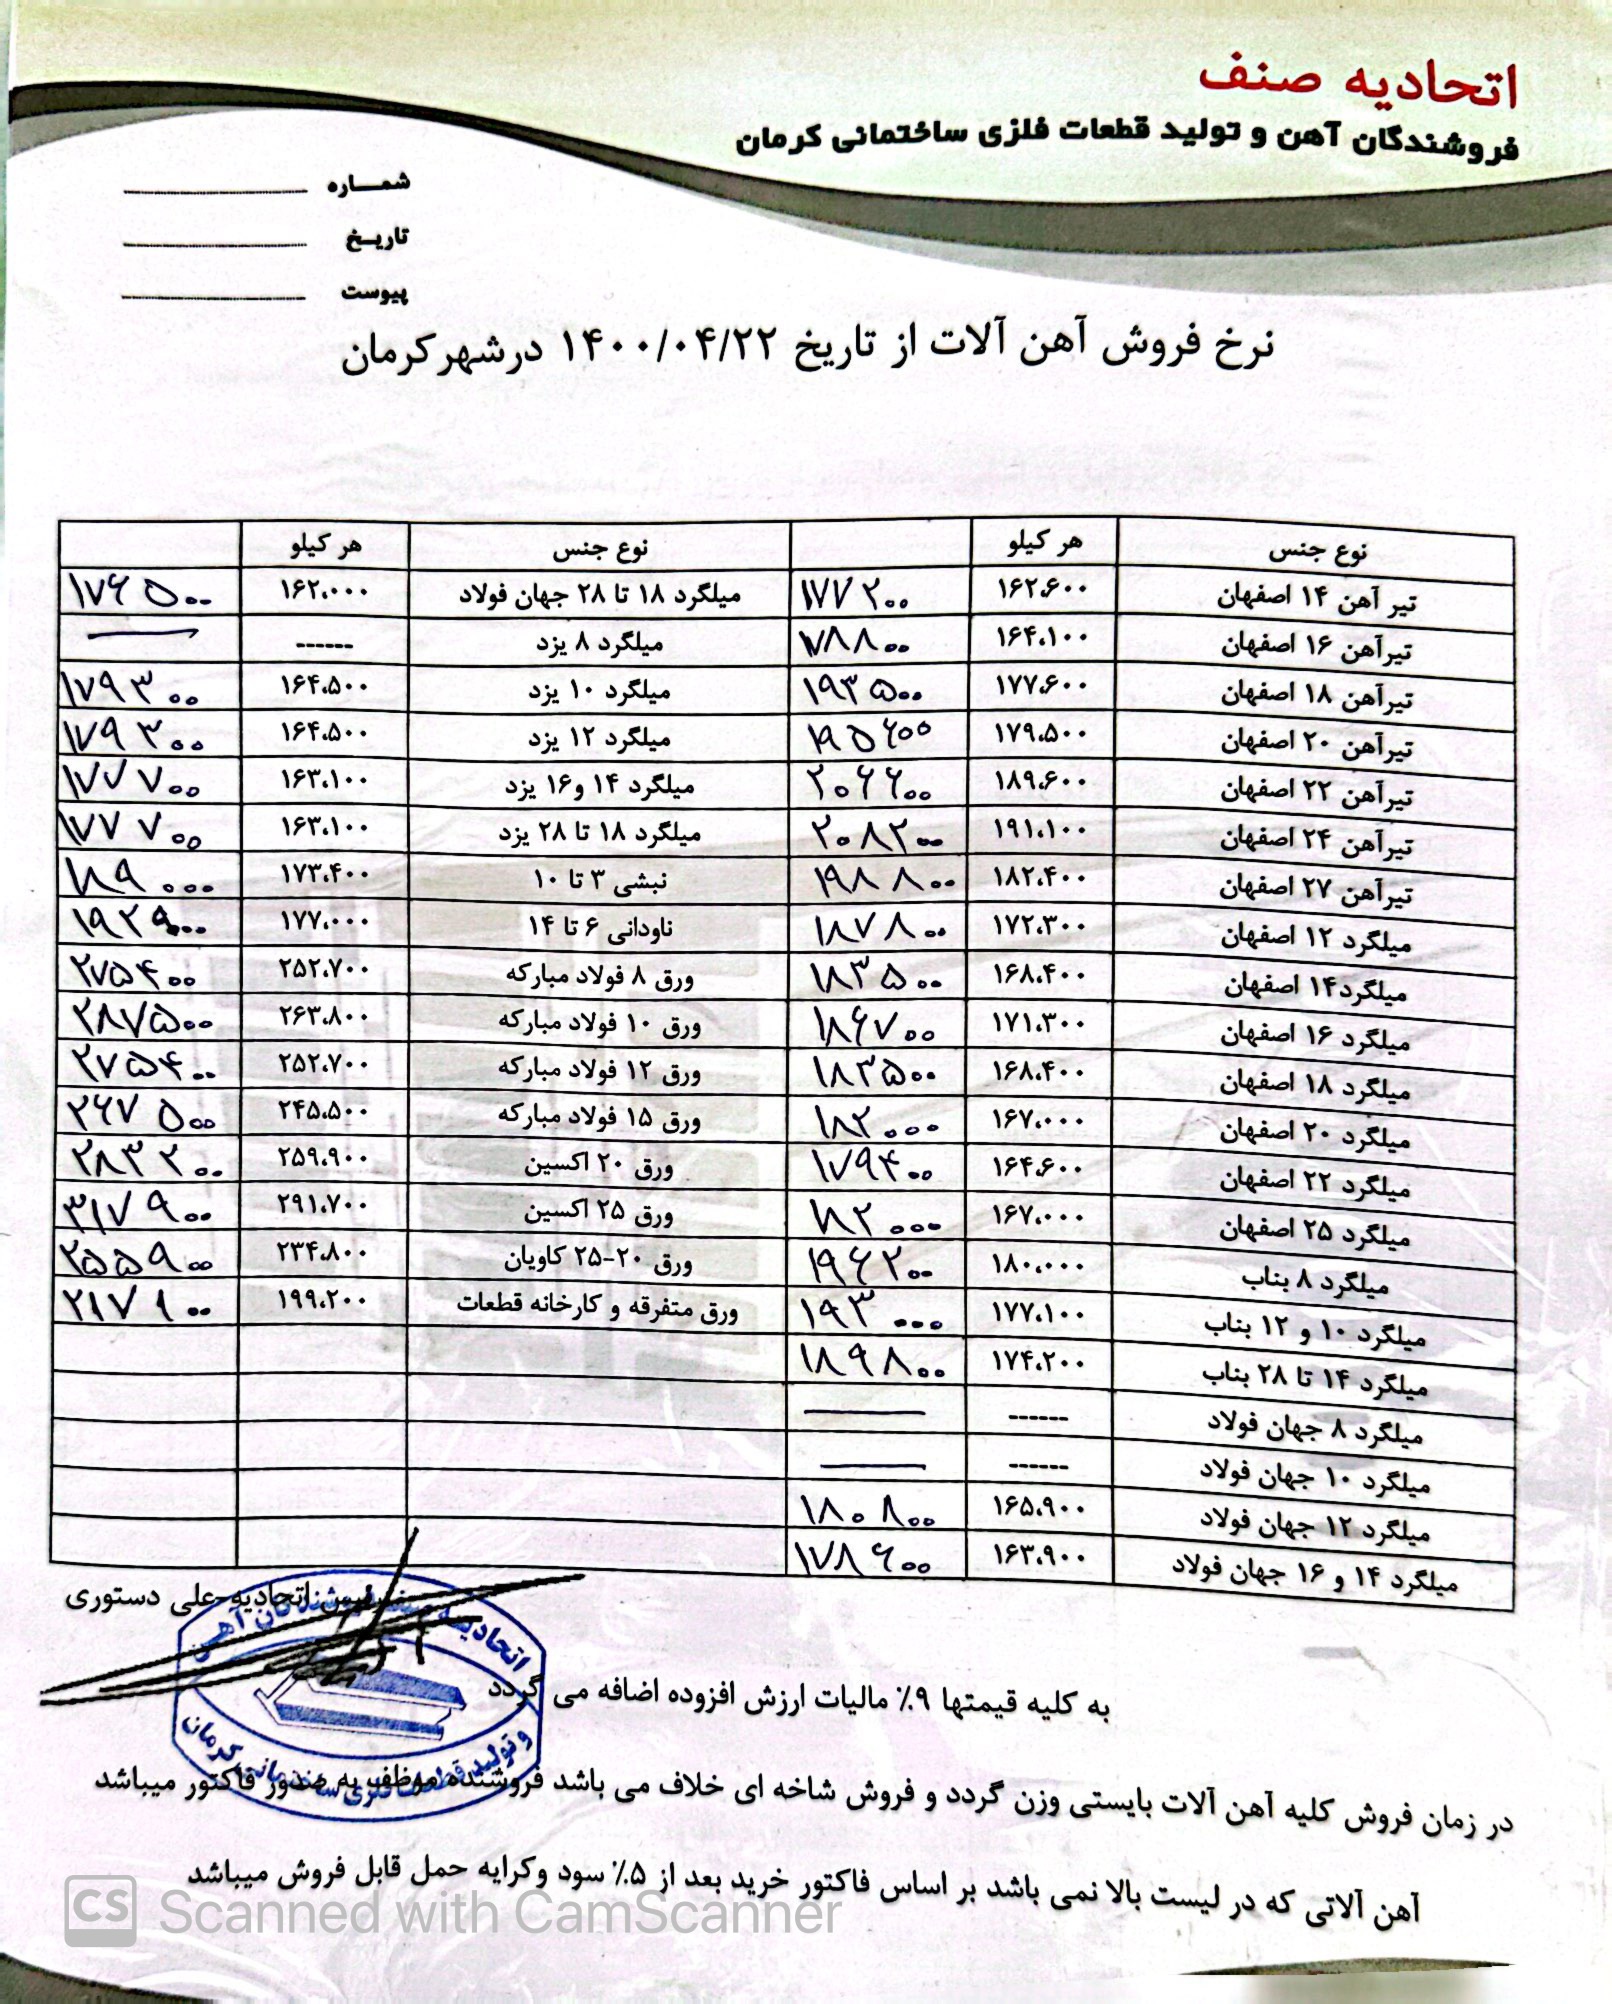 اتحادیه صنف
فروشندگان آهن و تولید قطعات فلزی ساختمانی کرمان
شمـــاره
تاریـخ
پیوست
نرخ فروش آهن آلات از تاریخ ۱۴۰۰/۰۴/۲۲ درشهرکرمان
نوع جنس هر کیلو نوع جنس هر کیلو
تیر آهن ۱۴ اصفهان ۱۶۲،۶۰۰ ۱۷۷۲۰۰ میلگرد ۱۸ تا ۲۸ جهان فولاد ۱۶۲،۰۰۰ ۱۷۶۵۰۰
تیرآهن ۱۶ اصفهان ۱۶۴،۱۰۰ ۱۷۸۸۰۰ میلگرد ۸ یزد ------
تیرآهن ۱۸ اصفهان ۱۷۷،۶۰۰ ۱۹۳۵۰۰ میلگرد ۱۰ یزد ۱۶۴،۵۰۰ ۱۷۹۳۰۰
تیرآهن ۲۰ اصفهان ۱۷۹،۵۰۰ ۱۹۵۶۰۰ میلگرد ۱۲ یزد ۱۶۴،۵۰۰ ۱۷۹۳۰۰
تیرآهن ۲۲ اصفهان ۱۸۹،۶۰۰ ۲۰۶۶۰۰ میلگرد ۱۴ و۱۶ یزد ۱۶۳،۱۰۰ ۱۷۷۷۰۰
تیرآهن ۲۴ اصفهان ۱۹۱،۱۰۰ ۲۰۸۲۰۰ میلگرد ۱۸ تا ۲۸ یزد ۱۶۳،۱۰۰ ۱۷۷۷۰۰
تیرآهن ۲۷ اصفهان ۱۸۲،۴۰۰ ۱۹۸۸۰۰ نبشی ۳ تا ۱۰ ۱۷۳،۴۰۰ ۱۸۹۰۰۰
میلگرد ۱۲ اصفهان ۱۷۲،۳۰۰ ۱۸۷۸۰۰ ناودانی ۶ تا ۱۴ ۱۷۷،۰۰۰ ۱۹۲۹۰۰
میلگرد۱۴ اصفهان ۱۶۸،۴۰۰ ۱۸۳۵۰۰ ورق ۸ فولاد مبارکه ۲۵۲،۷۰۰ ۲۷۵۴۰۰
میلگرد ۱۶ اصفهان ۱۷۱،۳۰۰ ۱۸۶۷۰۰ ورق ۱۰ فولاد مبارکه ۲۶۳،۸۰۰ ۲۸۷۵۰۰
میلگرد ۱۸ اصفهان ۱۶۸،۴۰۰ ۱۸۳۵۰۰ ورق ۱۲ فولاد مبارکه ۲۵۲،۷۰۰ ۲۷۵۴۰۰
میلگرد ۲۰ اصفهان ۱۶۷،۰۰۰ ۱۸۲۰۰۰ ورق ۱۵ فولاد مبارکه ۲۴۵،۵۰۰ ۲۶۷۵۰۰
میلگرد ۲۲ اصفهان ۱۶۴،۶۰۰ ۱۷۹۴۰۰ ورق ۲۰ اکسین ۲۵۹،۹۰۰ ۲۸۳۲۰۰
میلگرد ۲۵ اصفهان ۱۶۷،۰۰۰ ۱۸۲۰۰۰ ورق ۲۵ اکسین ۲۹۱،۷۰۰ ۳۱۷۹۰۰
میلگرد ۸ بناب ۱۸۰،۰۰۰ ۱۹۶۲۰۰ ورق ۲۰-۲۵ کاویان ۲۳۴،۸۰۰ ۲۵۵۹۰۰
میلگرد ۱۰ و ۱۲ بناب ۱۷۷،۱۰۰ ۱۹۳۰۰۰ ورق متفرقه و کارخانه قطعات ۱۹۹،۲۰۰ ۲۱۷۱۰۰
میلگرد ۱۴ تا ۲۸ بناب ۱۷۴،۲۰۰ ۱۸۹۸۰۰
میلگرد ۸ جهان فولاد ------
میلگرد ۱۰ جهان فولاد ------
میلگرد ۱۲ جهان فولاد ۱۶۵،۹۰۰ ۱۸۰۸۰۰
میلگرد ۱۴ و ۱۶ جهان فولاد ۱۶۳،۹۰۰ ۱۷۸۶۰۰
اتحادیه-علی دستوری
اتحادیه صنف فروشندگان آهن
و تولید قطعات فلزی ساختمانی کرمان
به کلیه قیمتها ۹٪ مالیات ارزش افزوده اضافه می گردد
در زمان فروش کلیه آهن آلات بایستی وزن گردد و فروش شاخه ای خلاف می باشد فروشنده موظف به صدور فاکتور میباشد
آهن آلاتی که در لیست بالا نمی باشد بر اساس فاکتور خرید بعد از ۵٪ سود وکرایه حمل قابل فروش میباشد
CS Scanned with CamScanner